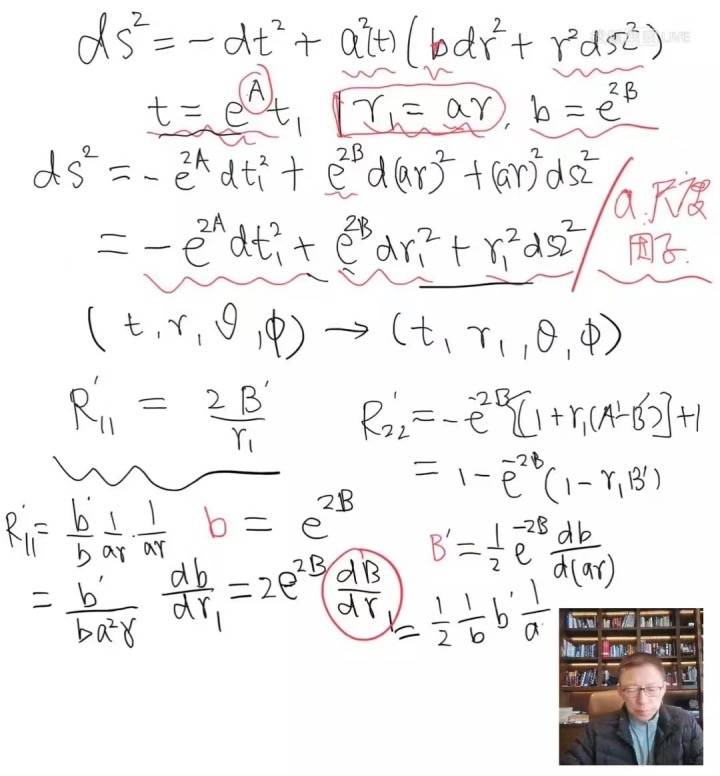 ds² = -dt² + a²(t)(b dr² + r²dΩ²)
LIVE
t = e^A t₁ r₁ = ar, b = e^{2B}
ds² = -e^{2A}dt₁² + e^{2B}d(ar)² + (ar)²dΩ²
= -e^{2A}dt₁² + e^{2B}dr₁² + r₁²dΩ²
a.尺度
因子.
(t, r, θ, ϕ) → (t₁ r₁, θ, ϕ)
R'₁₁ = 2B'/r₁
R'₂₂ = -e^{-2B}[1 + r₁(A'-B')] + 1
= 1 - e^{-2B}(1 - r₁B')
R'₁₁ = b'/b 1/ar · 1/ar
b = e^{2B}
B' = 1/2 e^{-2B} db/d(ar)
= b'/ba²r
db/dr₁ = 2e^{2B} dB/dr₁
= 1/2 1/b b' 1/a